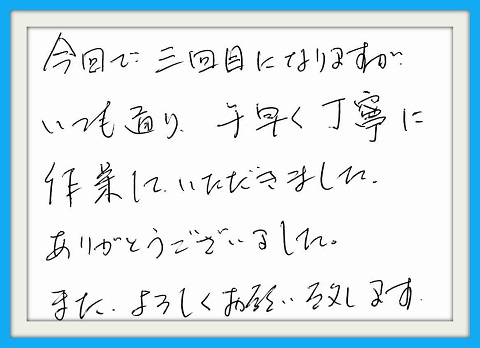 今回で三回目になりますが
いつも通り、手早く丁寧に
作業して、いただきました。
ありがとうございました。
また、よろしくお願い致します。